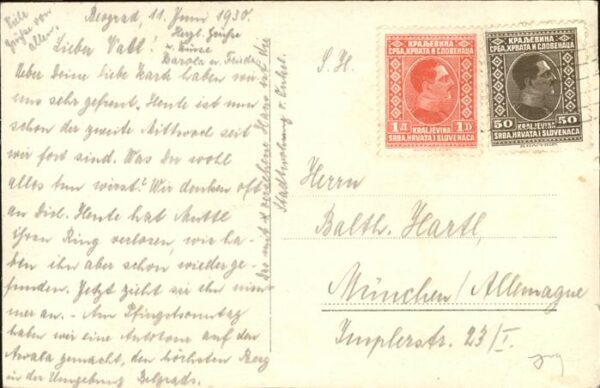 Viele
Grüße von
allen.
Beograd, 11. Juni 1930.
Herzl. Grüße
u. Küsse
Karola u. Friedl
Lieber Vatl!
Ueber Deine liebe Karte haben wir
uns sehr gefreut. Heute ist nun
schon der zweite Mittwoch seit
wir fort sind. Was Du wohl
alles tun wirst? Wir denken oft
an Dich. Heute hat Muttl
ihren Ring verloren, wir ha-
ben ihn aber schon wiederge-
funden. Jetzt zieht sie ihn nim-
mer an. - Am Pfingstsonntag
haben wir eine Autotour auf den
Avala gemacht, den höchsten Berg
in der Umgebung Belgrads.
Das mit x versehene Haus ist die
Stadtwohnung v. Onkel.
S. H.
Herrn
Balth. Hartl,
München/Allemagne
Implerstr. 23/I.
КРАЉЕВИНА
СРБА, ХРВАТА И СЛОВЕНАЦА
1 Д 1 D
KRALJEVINA
SRBA, HRVATA I SLOVENACA
КРАЉЕВИНА
СРБА, ХРВАТА И СЛОВЕНАЦА
50 50
KRALJEVINA
SRBA, HRVATA I SLOVENACA